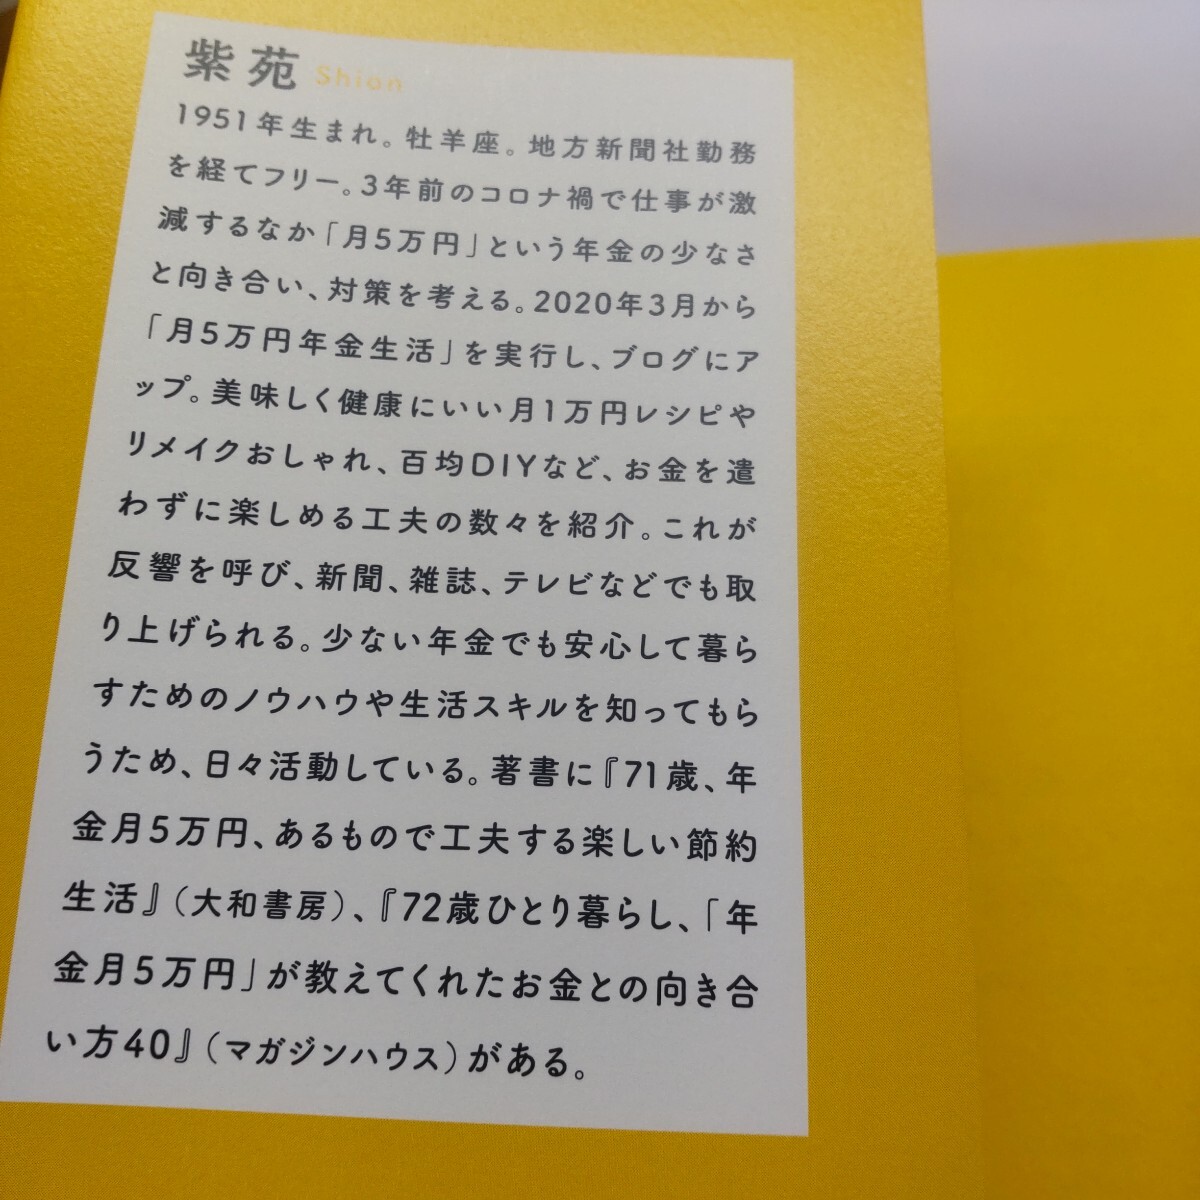 紫苑 Shion
1951年生まれ。牡羊座。地方新聞社勤務
を経てフリー。3年前のコロナ禍で仕事が激
減するなか「月5万円」という年金の少なさ
と向き合い、対策を考える。2020年3月から
「月5万円年金生活」を実行し、ブログにア
ップ。美味しく健康にいい月1万円レシピや
リメイクおしゃれ、百均DIYなど、お金を遣
わずに楽しめる工夫の数々を紹介。これが
反響を呼び、新聞、雑誌、テレビなどでも取
り上げられる。少ない年金でも安心して暮ら
すためのノウハウや生活スキルを知ってもら
うため、日々活動している。著書に『71歳、年
金月5万円、あるもので工夫する楽しい節約
生活』（大和書房）、『72歳ひとり暮らし、「年
金月5万円」が教えてくれたお金との向き合
い方40』（マガジンハウス）がある。